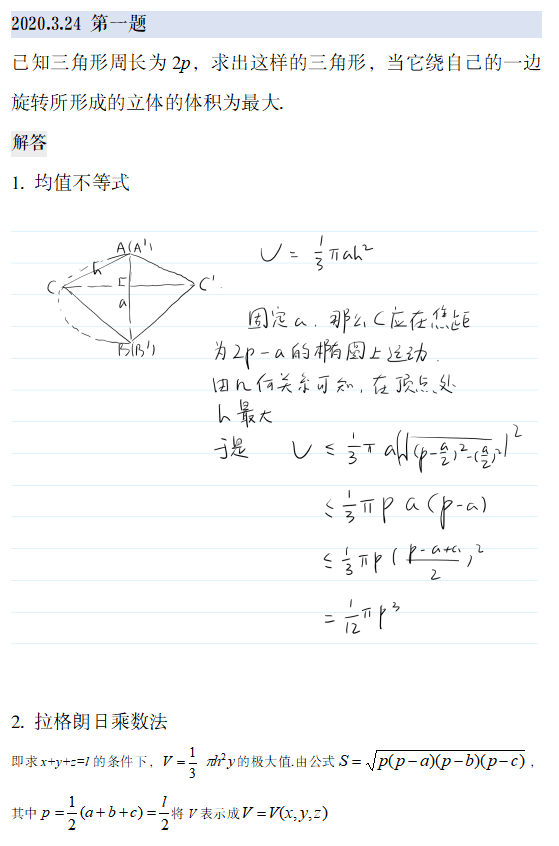 2020.3.24 第一题
已知三角形周长为 2p，求出这样的三角形，当它绕自己的一边
旋转所形成的立体的体积为最大.
解答
1. 均值不等式
A(A')
h
C
a
C'
B(B')
V = 1/3 πah²
固定a，那么C应在焦距
为2p-a的椭圆上运动.
由几何关系可知，在顶点处
h最大
于是 V ≤ 1/3 π a(√((p-a/2)²-(a/2)²))²
≤ 1/3 π p a (p-a)
≤ 1/3 π p ((p-a+a)/2)²
= 1/12 π p³
2. 拉格朗日乘数法
即求 x+y+z=l 的条件下，V = 1/3 πh²y 的极大值.由公式 S = √(p(p-a)(p-b)(p-c))，
其中 p = 1/2 (a+b+c) = l/2 将 V 表示成 V = V(x, y, z)